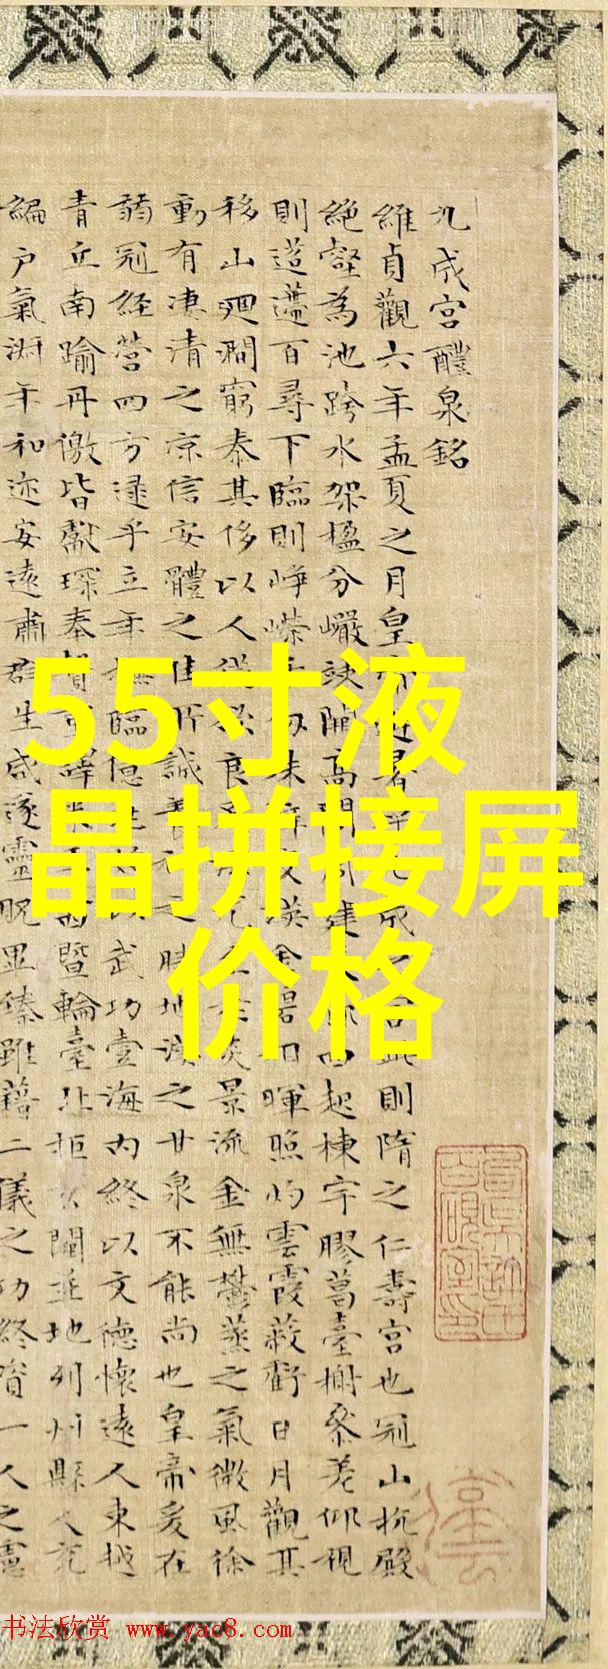 九成宮醴泉銘
維貞觀六年孟夏之月皇避暑九成則隋之仁壽宮也冠山抗殿
絕壑為池跨水架楹分巖竦闕高閣周建四起棟宇膠葛臺榭參差仰視
則迢遰百尋下臨則崢嶸仞珠交暎金碧相暉照灼雲霞蔽虧日月觀其
移山迴澗窮泰其侈以人從欲良炎景流金無鬱蒸之氣微風徐
動有淒清之涼信安體之佳所誠養神之勝地漢之甘泉不能尚也皇帝爰在
弱冠經營四方逮乎立年撫臨億以武功壹海內終以文德懷遠人東越
青丘南踰丹儌皆獻琛奉贄重譯來西暨輪臺北拒玄闕並地列州縣人充
編戶氣淑年和迩安遠肅群生咸遂靈貺畢臻雖藉二儀之功終資一人之慮
55寸液
晶拼接屏
价格
书法欣赏 www.yac8.com